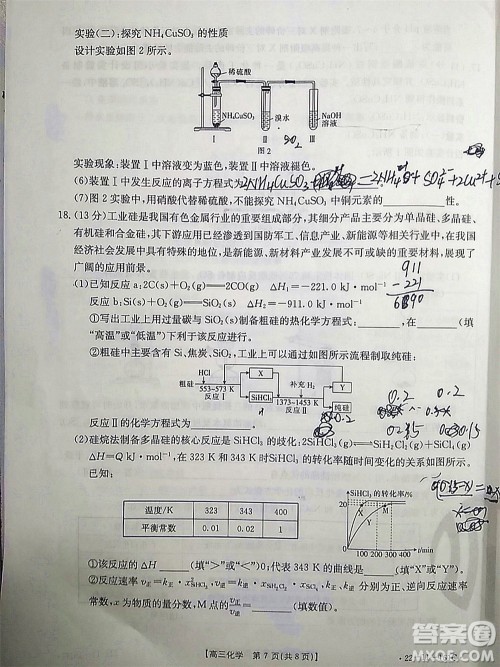 实验(二):探究 NH₄CuSO₃ 的性质
设计实验如图 2 所示。
稀硫酸
NH₄CuSO₃
溴水
NaOH
溶液
Ⅰ Ⅱ Ⅲ
图 2
SO₂
实验现象:装置Ⅰ中溶液变为蓝色,装置Ⅱ中溶液褪色。
(6)装置Ⅰ中发生反应的离子方程式为
(7)图 2 实验中,用硝酸代替稀硫酸,不能探究 NH₄CuSO₃ 中铜元素的
18.(13 分)工业硅是我国有色金属行业的重要组成部分,其细分产品主要分为单晶硅、多晶硅、
有机硅和合金硅,其下游应用已经渗透到国防军工、信息产业、新能源等相关行业中,在我国
经济社会发展中具有特殊的地位,是新能源、新材料产业发展不可或缺的重要材料,展现了
广阔的应用前景。
911
-221
(1)已知反应 a:2C(s)+O₂(g)═══2CO(g) ΔH₁=-221.0 kJ·mol⁻¹
反应 b:Si(s)+O₂(g)═══SiO₂(s) ΔH₂=-911.0 kJ·mol⁻¹
①写出工业上用过量碳与 SiO₂(s)制备粗硅的热化学方程式:______,在______(填
“高温”或“低温”)下利于该反应进行。
②粗硅中主要含有 Si、焦炭、SiO₂,工业上可以通过如图所示流程制取纯硅:
HCl
粗硅
553~573 K
反应Ⅰ
X
SiHCl₃
补充 H₂
1373~1453 K
反应Ⅱ
Y
纯硅
0.2 0.2
反应Ⅱ的化学方程式为
(2)硅烷法制备多晶硅的核心反应是 SiHCl₃ 的歧化:2SiHCl₃(g)⇌SiH₂Cl₂(g)+SiCl₄(g)
ΔH=Q kJ·mol⁻¹,在 323 K 和 343 K 时SiHCl₃ 的转化率随时间变化的关系如图所示。
温度/K 323 343 400
平衡常数 0.01 0.02 1
SiHCl₃转化率/%
30
20
10
0 100 200 300 400 t/min
X Y
①该反应的 ΔH______(填“>”或“<”)0;代表 343 K 的曲线是______(填“X”或“Y”)。
②反应速率 v正=k正·x²SiHCl₃,v逆=k逆·xSiH₂Cl₂·xSiCl₄,k正、k逆分别为正、逆反应速率
常数,x 为物质的量分数,M 点的v正/v逆=______(填数值)。
【高三化学 第 7 页(共 8 页)】
答案圈